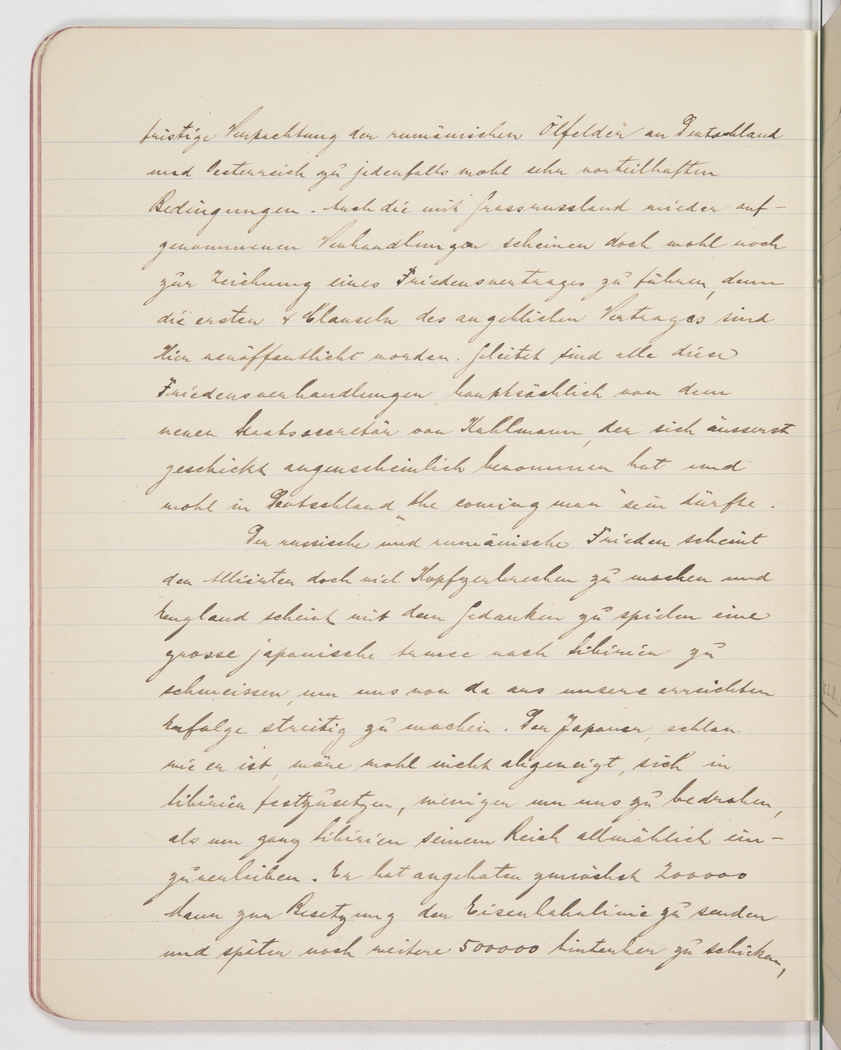 fristige Verpachtung der rumänischen Ölfelder an Deutschland
und Oesterreich zu jedenfalls wohl sehr vorteilhaften
Bedingungen. Auch die mit Grossrussland wieder auf-
genommenen Verhandlungen scheinen doch wohl noch
zur Zeichnung eines Friedensvertrages zu führen, denn
die ersten 4 Clauseln des angeblichen Vertrages sind
hier veröffentlicht worden. Geleitet sind alle diese
Friedensverhandlungen hauptsächlich von dem
neuen Staatssecretär von Kühlmann, der sich äusserst
geschickt augenscheinlich benommen hat und
wohl in Deutschland "the coming man" sein dürfte.
Der russische und rumänische Frieden scheint
den Alliirten doch viel Kopfzerbrechen zu machen und
England scheint mit dem Gedanken zu spielen eine
grosse japanische Armee nach Sibirien zu
schmeissen, um uns von da aus unsere erreichten
Erfolge streitig zu machen. Der Japaner, schlau
wie er ist, wäre wohl nicht abgeneigt, sich in
Sibirien festzusetzen, weniger um uns zu bedrohen,
als um ganz Sibirien seinem Reich allmählich ein-
zuverleiben. Er hat angeboten zunächst 200000
Mann zur Besetzung der Eisenbahnlinie zu senden
und später noch weitere 500000 hinterher zu schicken,